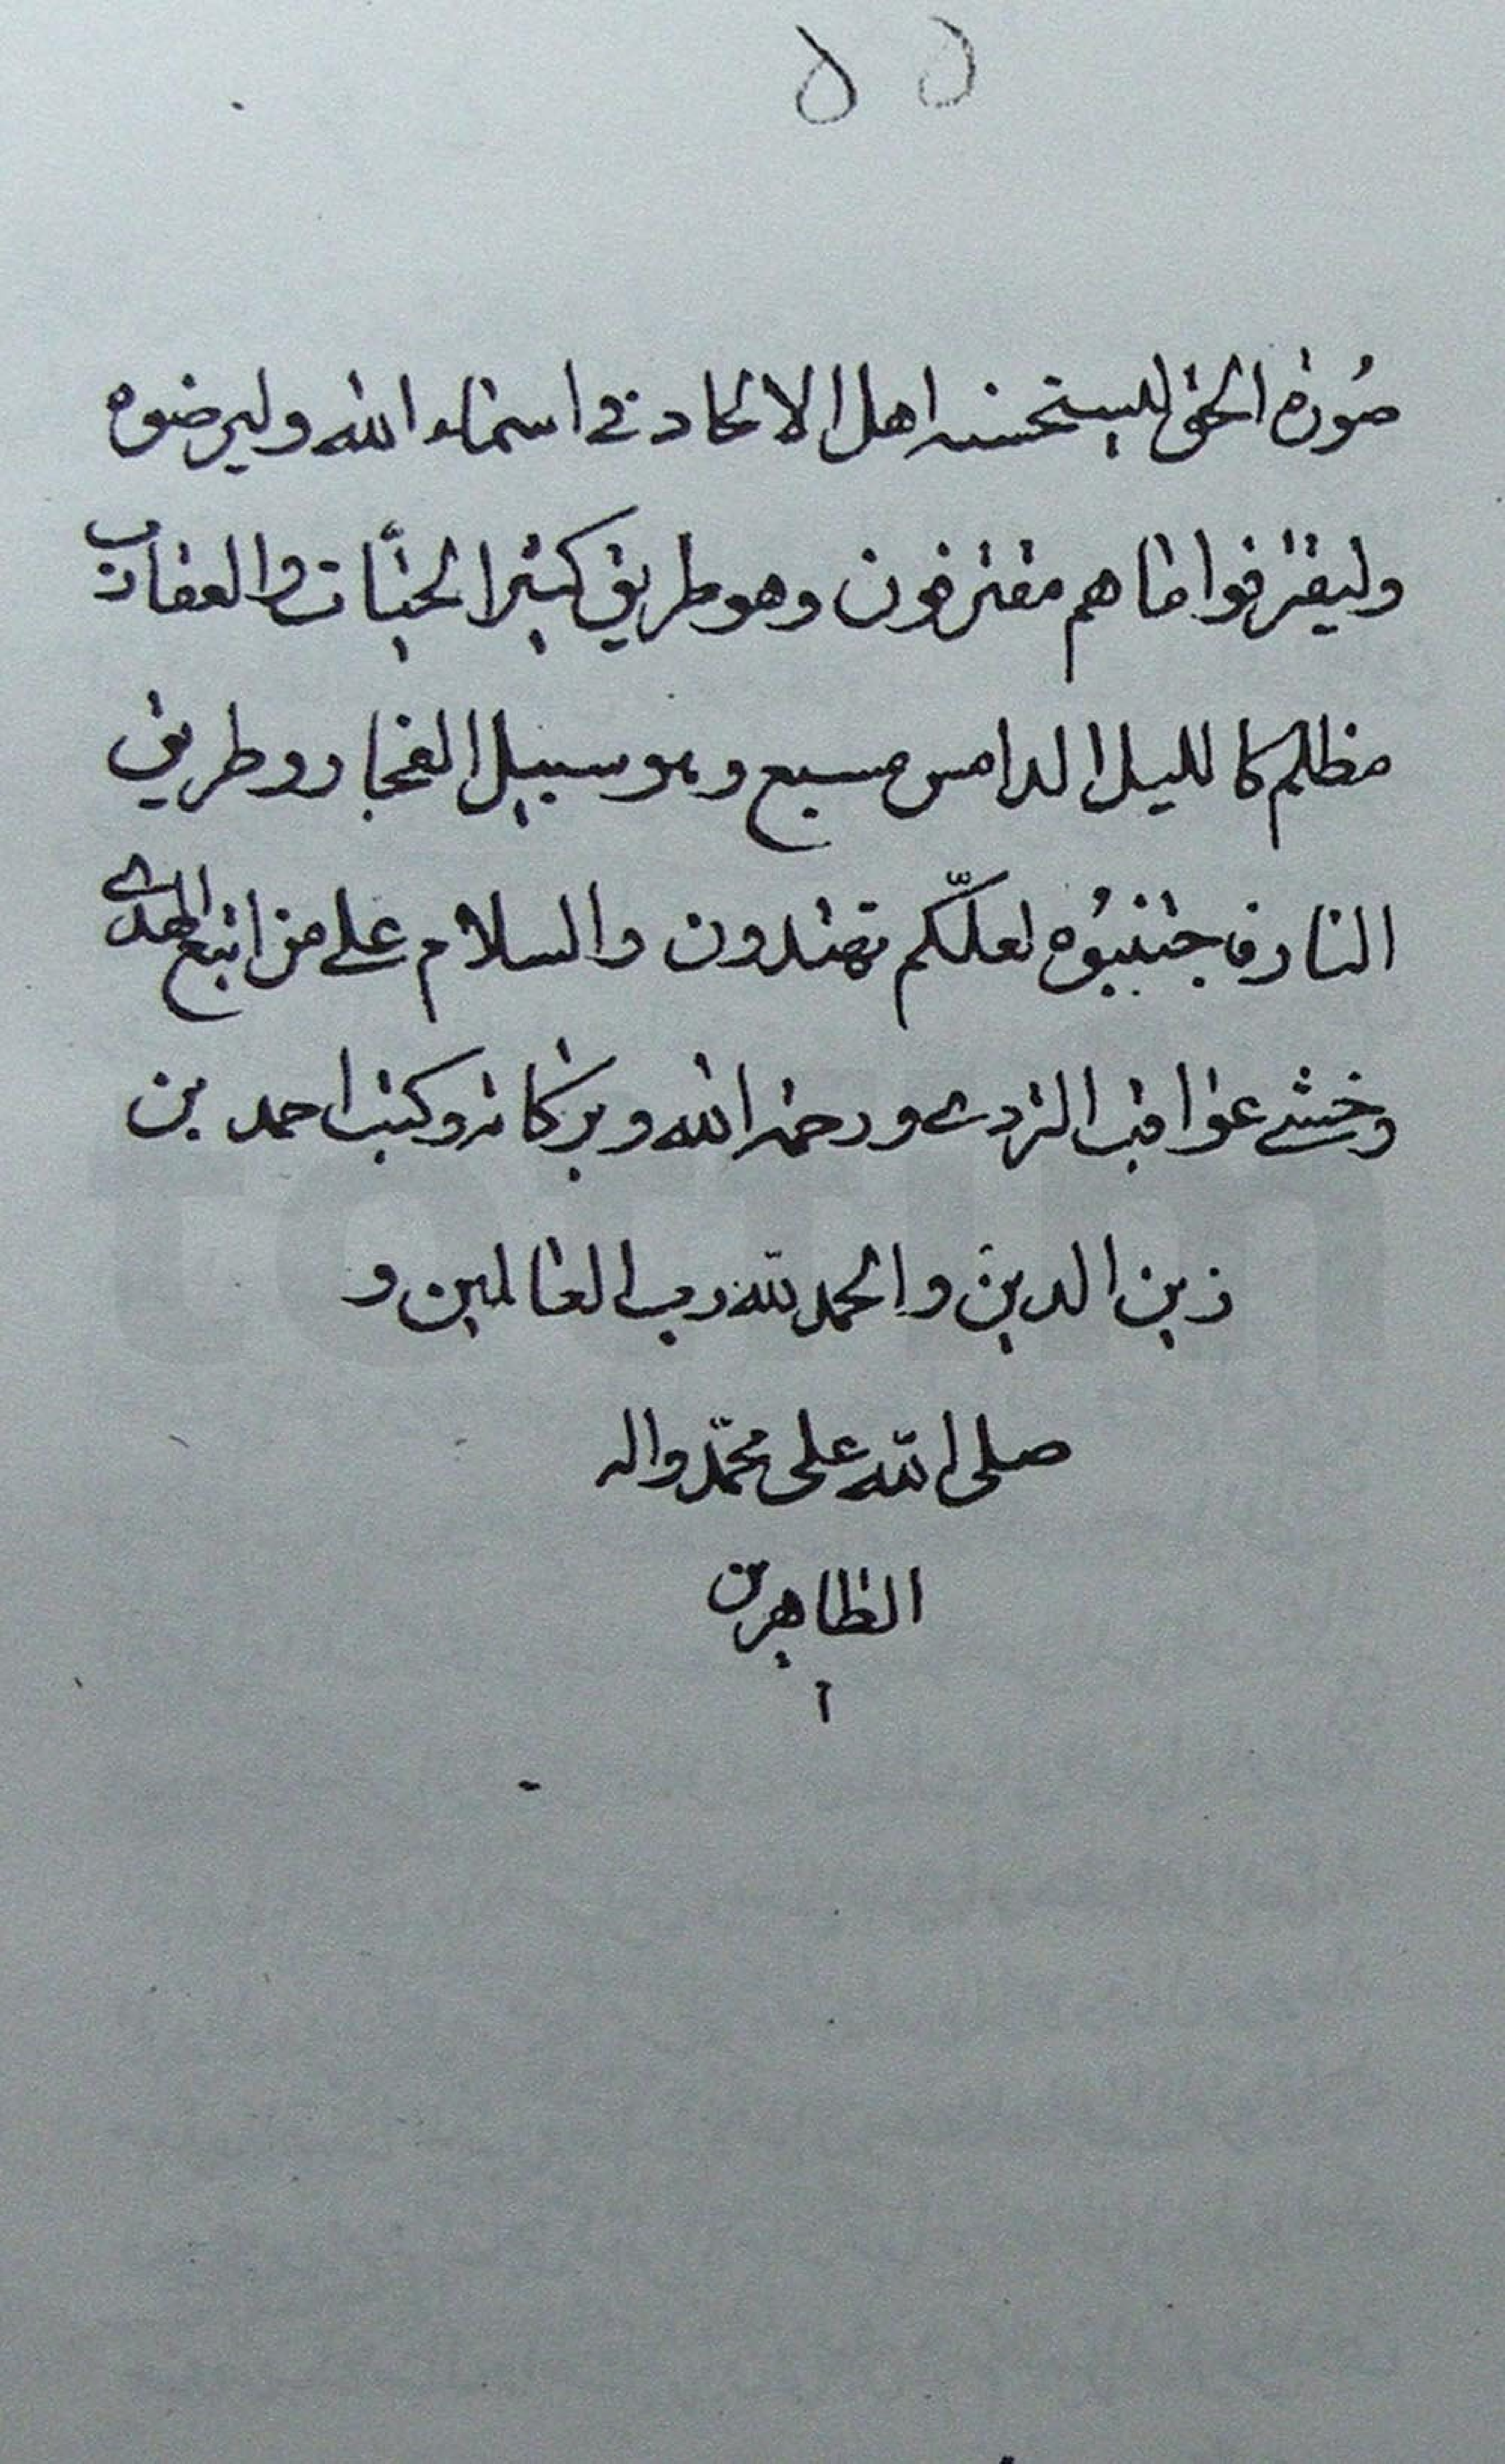 ۵۵
صُورة الحق ليستحسنه اهل الالحاد في اسماء الله وليرضوه
وليقترفوا ما هم مقترفون وهو طريق كثير الحيّات والعقارب
مظلم كالليل الدامس مسبع وهو سبيل الفجار وطريق
النار فاجتنبوُه لعلّكم تهتدون والسلام على من اتبع الهدى
وخشي عواقب الردى ورحمة الله وبركاته وكتب احمد بن
زين الدين والحمد لله رب العالمين و
صلى الله على محمّد واله
الطاهرين